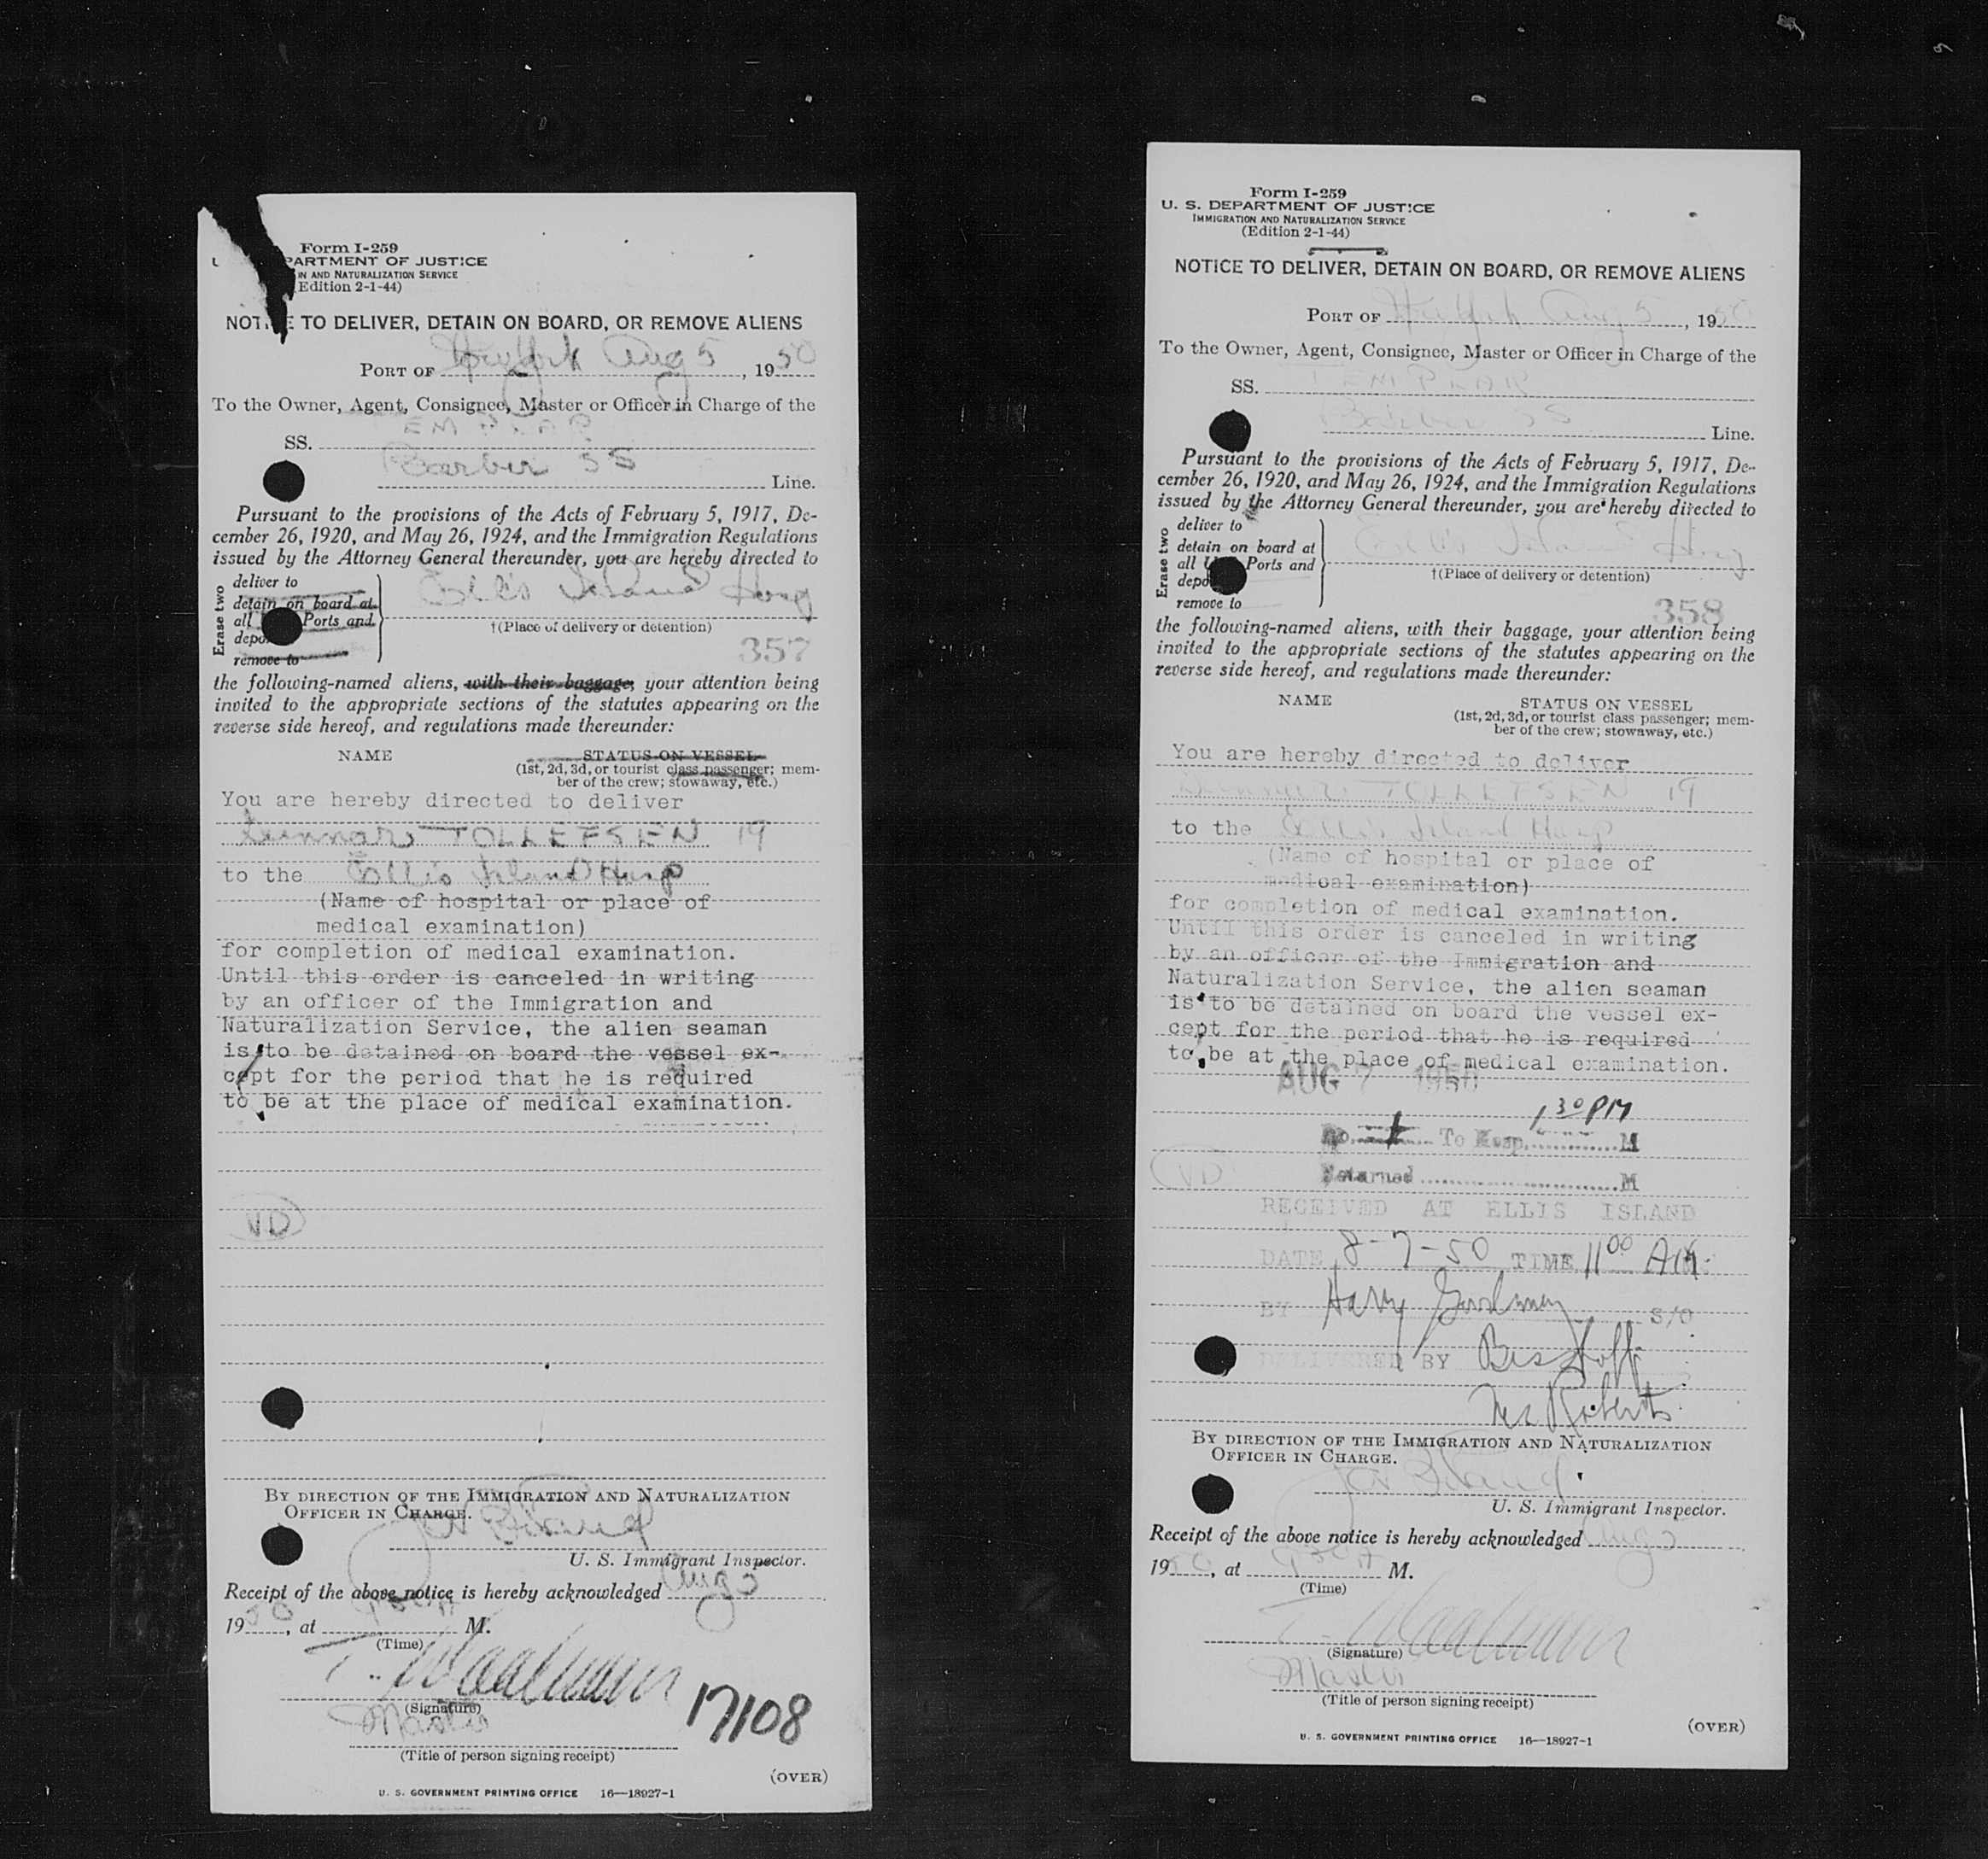 Form I-259
PARTMENT OF JUSTICE
IN AND NATURALIZATION SERVICE
Edition 2-1-44)
NOTI E TO DELIVER, DETAIN ON BOARD, OR REMOVE ALIENS
PORT OF New York Aug 5, 1950
To the Owner, Agent, Consignee, Master or Officer in Charge of the
SS. TEMPLAR
Barber SS Line.
Pursuant to the provisions of the Acts of February 5, 1917, De-
cember 26, 1920, and May 26, 1924, and the Immigration Regulations
issued by the Attorney General thereunder, you are hereby directed to
Erase two
deliver to
detain on board at
all Ports and
depo
remove to
Ellis Island Hosp
†(Place of delivery or detention)
357
the following-named aliens, with their baggage, your attention being
invited to the appropriate sections of the statutes appearing on the
reverse side hereof, and regulations made thereunder:
NAME STATUS ON VESSEL
(1st, 2d, 3d, or tourist class passenger; mem-
ber of the crew; stowaway, etc.)
You are hereby directed to deliver
Gunnar TOLLEFSEN 19
to the Ellis Island Hosp
(Name of hospital or place of
medical examination)
for completion of medical examination.
Until this order is canceled in writing
by an officer of the Immigration and
Naturalization Service, the alien seaman
is to be detained on board the vessel ex-
cept for the period that he is required
to be at the place of medical examination.
VD
BY DIRECTION OF THE IMMIGRATION AND NATURALIZATION
OFFICER IN CHARGE.
U. S. Immigrant Inspector.
Receipt of the above notice is hereby acknowledged Aug 5
1950, at 930 A M.
(Time)
(Signature)
Master
(Title of person signing receipt)
17108
(OVER)
U. S. GOVERNMENT PRINTING OFFICE 16—18927-1
Form I-259
U. S. DEPARTMENT OF JUSTICE
IMMIGRATION AND NATURALIZATION SERVICE
(Edition 2-1-44)
NOTICE TO DELIVER, DETAIN ON BOARD, OR REMOVE ALIENS
PORT OF New York Aug 5, 1950
To the Owner, Agent, Consignee, Master or Officer in Charge of the
SS. TEMPLAR
Barber SS Line.
Pursuant to the provisions of the Acts of February 5, 1917, De-
cember 26, 1920, and May 26, 1924, and the Immigration Regulations
issued by the Attorney General thereunder, you are hereby directed to
Erase two
deliver to
detain on board at
all U Ports and
depo
remove to
Ellis Island Hosp
†(Place of delivery or detention)
358
the following-named aliens, with their baggage, your attention being
invited to the appropriate sections of the statutes appearing on the
reverse side hereof, and regulations made thereunder:
NAME STATUS ON VESSEL
(1st, 2d, 3d, or tourist class passenger; mem-
ber of the crew; stowaway, etc.)
You are hereby directed to deliver
Gunnar TOLLEFSEN 19
to the Ellis Island Hosp
(Name of hospital or place of
medical examination)
for completion of medical examination.
Until this order is canceled in writing
by an officer of the Immigration and
Naturalization Service, the alien seaman
is to be detained on board the vessel ex-
cept for the period that he is required
to be at the place of medical examination.
AUG 7 1950
1 30 PM
No. 1 To Hosp. M
VD Returned M
RECEIVED AT ELLIS ISLAND
DATE 8-7-50 TIME 11 00 AM.
BY Harry S/O
DELIVERED BY
Roberts
BY DIRECTION OF THE IMMIGRATION AND NATURALIZATION
OFFICER IN CHARGE.
U. S. Immigrant Inspector.
Receipt of the above notice is hereby acknowledged Aug 5
1950, at 930 A M.
(Time)
(Signature)
Master
(Title of person signing receipt)
(OVER)
U. S. GOVERNMENT PRINTING OFFICE 16—18927-1